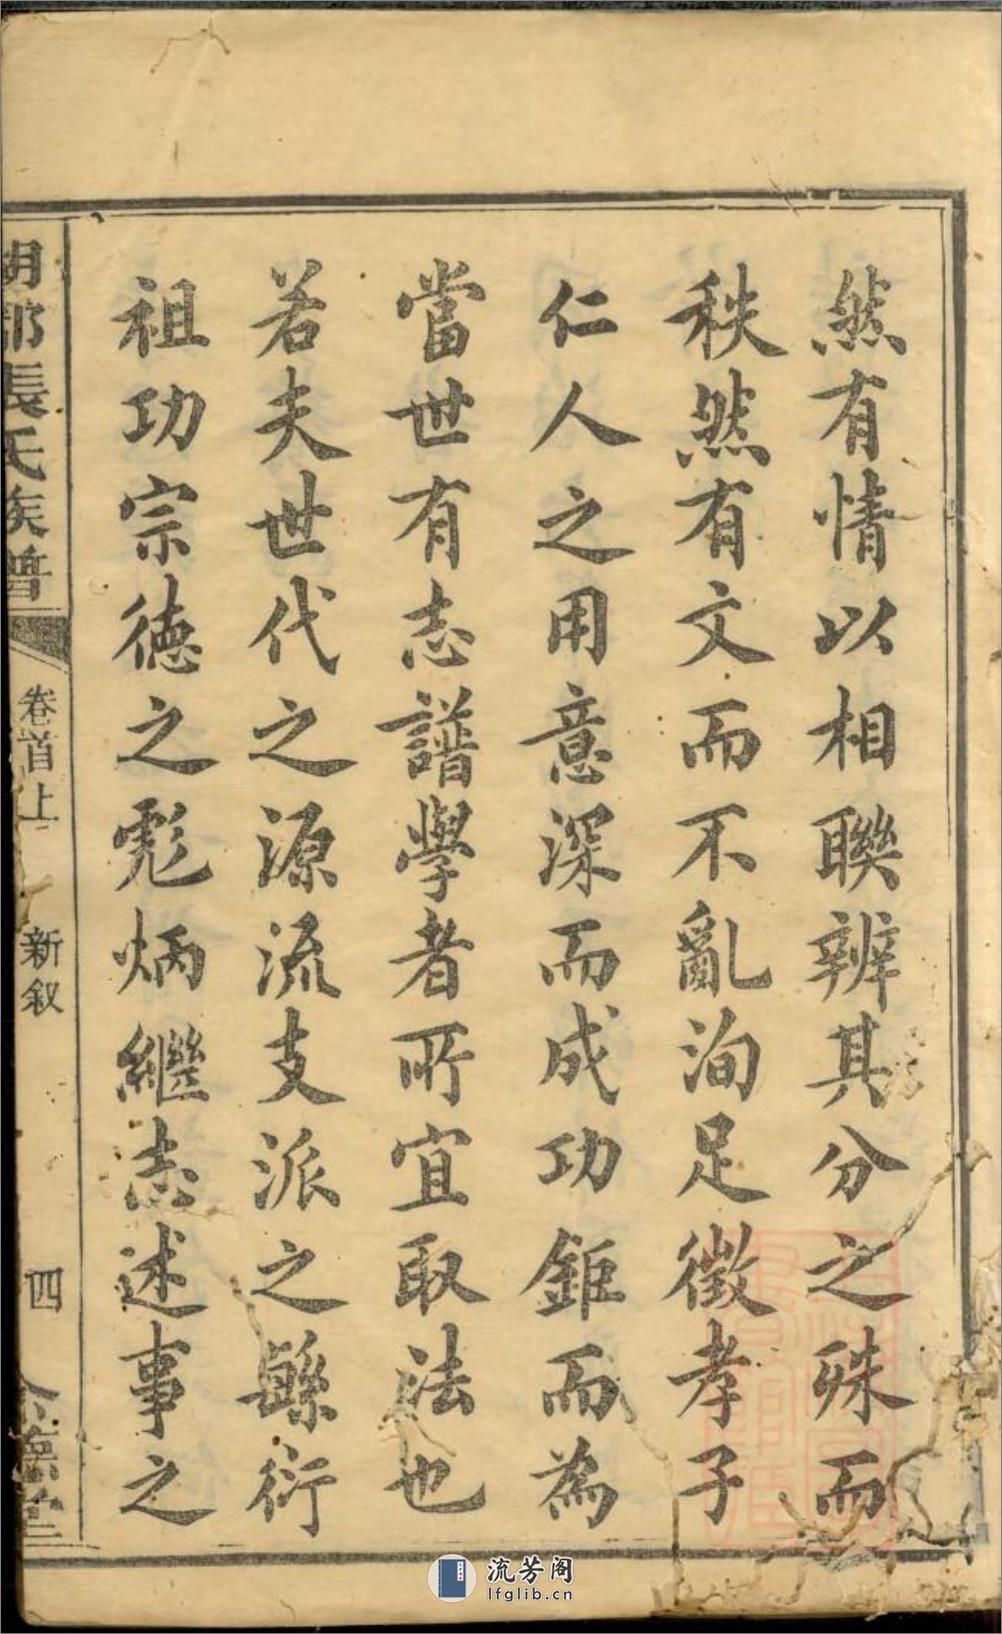 然有情以相聯辨其分之殊而
秩然有文而不亂洵足徵孝子
仁人之用意深而成功鉅而為
當世有志譜學者所宜取法也
若夫世代之源流支派之繇衍
祖功宗德之彪炳繼志述事之
胡部張氏族譜
卷首上
新叙
四
流芳阁
lfglib.cn